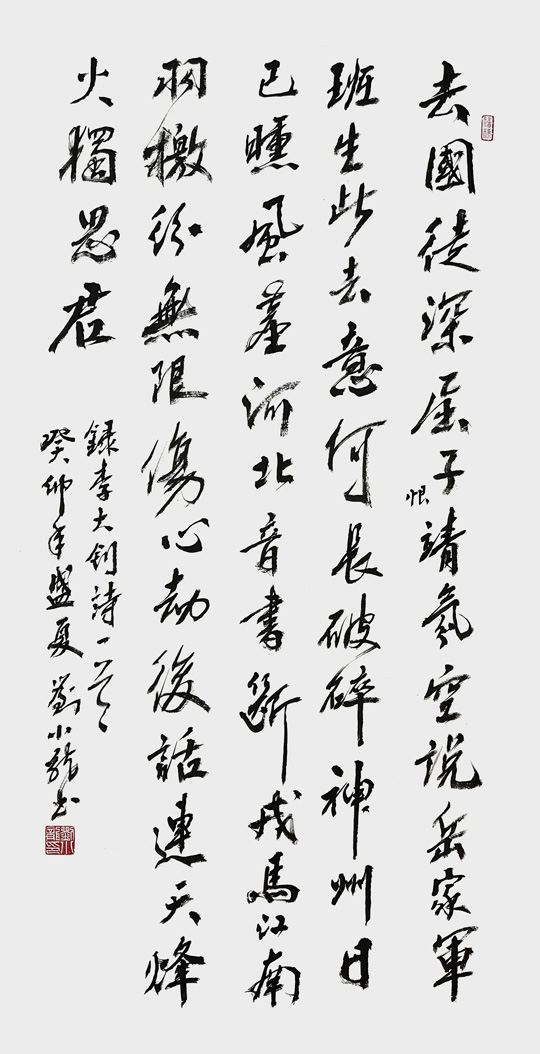 去國徒深屈子恨靖氛空說岳家軍
班生此去意何長破碎神州日
已曛風塵河北音書斷戎馬江南
羽檄紛無限傷心劫後話連天烽
火獨思君
録李大釗詩一首
癸卯年盛夏劉小龍书